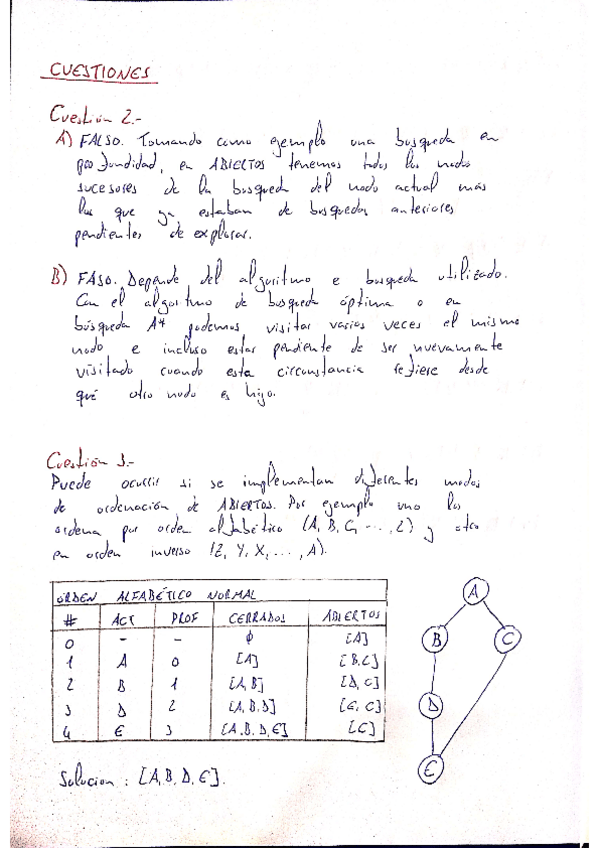 CUESTIONES
Cuestión 2.-
A) FALSO. Tomando como ejemplo una busqueda en
profundidad, en ABIERTOS tenemos todos los nodos
sucesores de la busqueda del nodo actual más
los que ya estaban de busquedas anteriores
pendientes de explorar.
B) FASO. Depende del algoritmo e busqueda utilizado.
Con el algoritmo de busqueda óptima o en
búsqueda A* podemos visitar varias veces el mismo
nodo e incluso estar pendiente de ser nuevamente
visitado cuando esta circunstancia refiere desde
qué otro nodo es hijo.
Cuestión 3.-
Puede ocurrir si se implementan diferentes modos
de ordenación de ABIERTOS. Por ejemplo uno los
ordena por orden alfabético (A, B, C, ..., Z) y otro
en orden inverso (Z, Y, X, ..., A).
ORDEN ALFABÉTICO NORMAL
# ACT PROF CERRADOS ABIERTOS
0 - - ϕ [A]
1 A 0 [A] [B,C]
2 B 1 [A,B] [D, C]
3 D 2 [A,B,D] [E, C]
4 E 3 [A,B,D,E] [C]
Solucion : [A,B,D,E].
A
B C
D
E